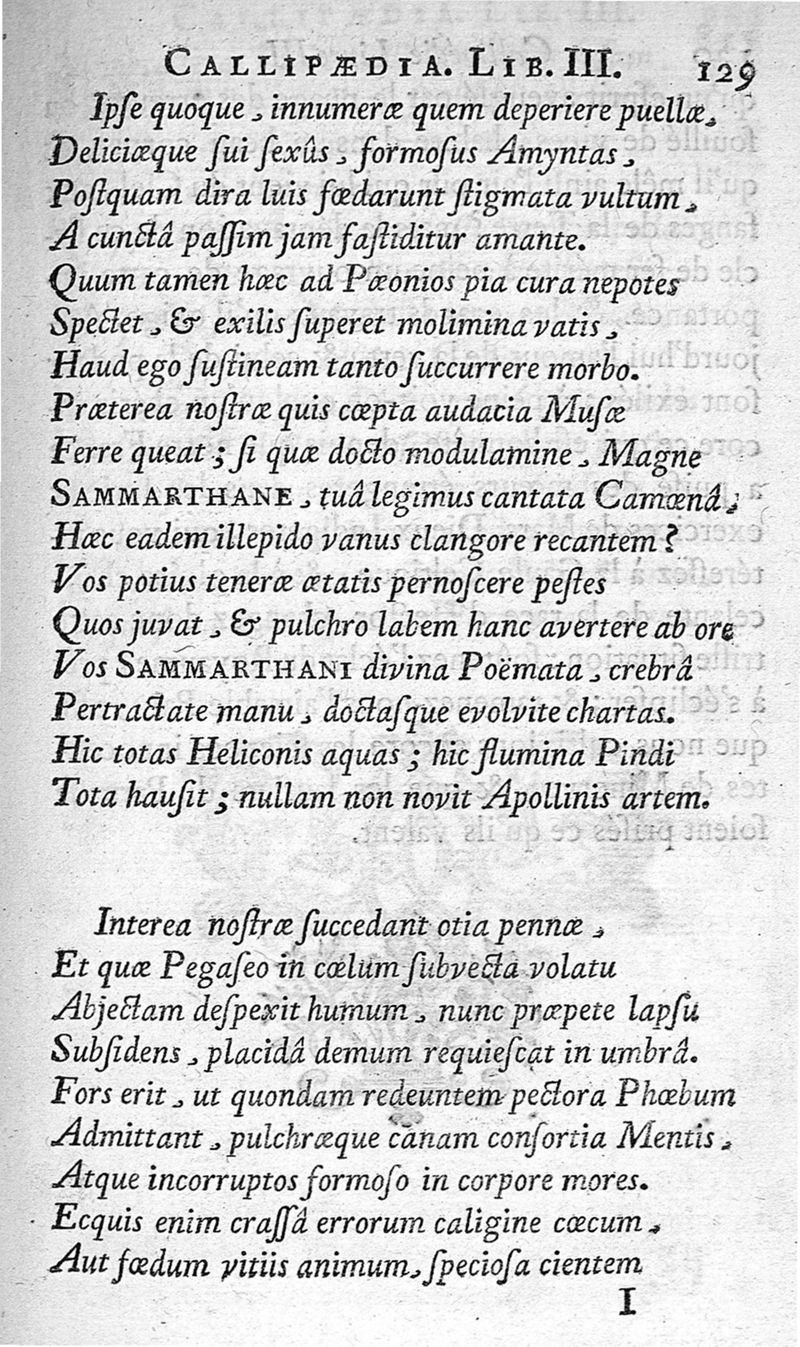 CALLIPÆDIA. LIB. III. 129
Ipſe quoque, innumeræ quem deperiere puellæ,
Deliciæque ſui ſexûs, formoſus Amyntas,
Poſtquam dira luis fœdarunt ſtigmata vultum,
A cunctâ paſſim jam faſtiditur amante.
Quum tamen hæc ad Pæonios pia cura nepotes
Spectet, & exilis ſuperet molimina vatis,
Haud ego ſuſtineam tanto ſuccurrere morbo.
Præterea noſtræ quis cœpta audacia Muſæ
Ferre queat; ſi quæ docto modulamine, Magne
SAMMARTHANE, tuâ legimus cantata Camœnâ,
Hæc eadem illepido vanus clangore recantem?
Vos potius teneræ ætatis pernoſcere peſtes
Quos juvat, & pulchro labem hanc avertere ab ore
Vos SAMMARTHANI divina Poëmata, crebrâ
Pertractate manu, doctaſque evolvite chartas.
Hic totas Heliconis aquas; hic flumina Pindi
Tota hauſit; nullam non novit Apollinis artem.
Interea noſtræ ſuccedant otia pennæ,
Et quæ Pegaſeo in cœlum ſubvecta volatu
Abjectam deſpexit humum, nunc præpete lapſu
Subſidens, placidâ demum requieſcat in umbrâ.
Fors erit, ut quondam redeuntem pectora Phœbum
Admittant, pulchræque canam conſortia Mentis,
Atque incorruptos formoſo in corpore mores.
Ecquis enim craſſâ errorum caligine cœcum,
Aut fœdum vitiis animum, ſpecioſa cientem
I